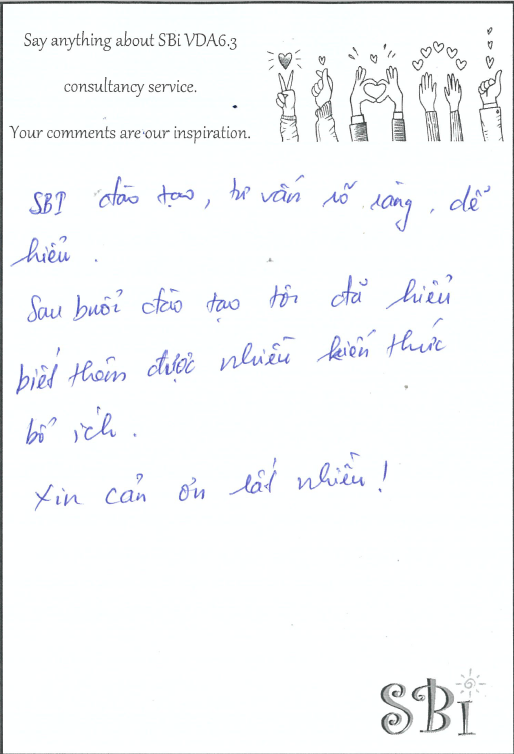 Say anything about SBi VDA6.3
consultancy service.
Your comments are our inspiration.
SBI đào tạo, tư vấn rõ ràng, dễ
hiểu.
Sau buổi đào tạo tôi đã hiểu
biết thêm được nhiều kiến thức
bổ ích.
Xin cảm ơn rất nhiều!
SBi